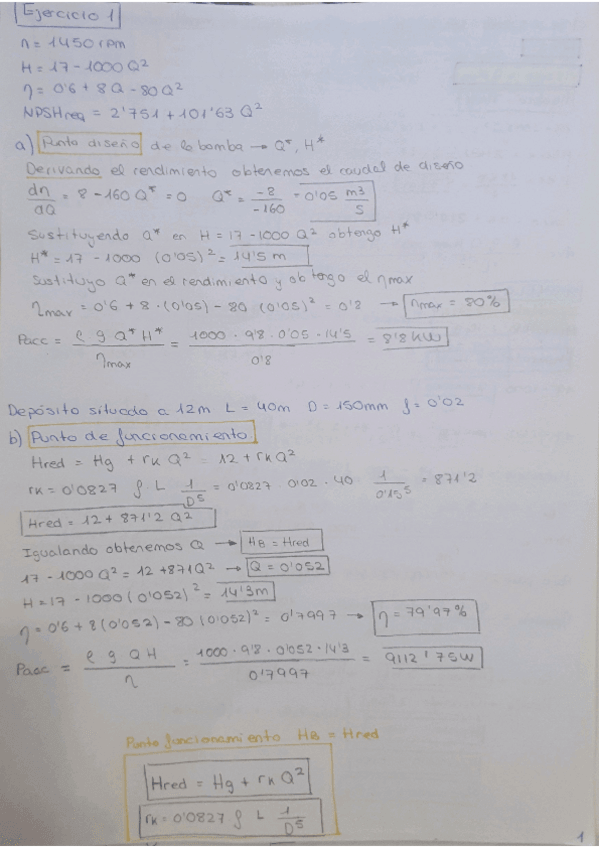 Ejercicio 1
n = 1450 rpm
H = 17 - 1000 Q²
η = 0'6 + 8Q - 80Q²
NPSHreq = 2'751 + 101'63 Q²
a) Punto diseño de la bomba → Q*, H*
Derivando el rendimiento obtenemos el caudal de diseño
dη/dQ = 8 - 160 Q* = 0 Q* = -8/-160 = 0'05 m3/s
Sustituyendo Q* en H = 17 - 1000 Q² obtengo H*
H* = 17 - 1000 (0'05)² = 14'5 m
Sustituyo Q* en el rendimiento y obtengo el ηmax
ηmax = 0'6 + 8 · (0'05) - 80 (0'05)² = 0'8 → ηmax = 80%
Pacc = ρ g Q* H* / ηmax = 1000 · 9'8 · 0'05 · 14'5 / 0'8 = 8'8 kW
Depósito situado a 12m L = 40m D = 150mm f = 0'02
b) Punto de funcionamiento
Hred = Hg + rk Q² = 12 + rk Q²
rk = 0'0827 f L 1/D⁵ = 0'0827 0'02 · 40 1/0'15⁵ = 871'2
Hred = 12 + 871'2 Q2
Igualando obtenemos Q → HB = Hred
17 - 1000Q² = 12 + 871Q² → Q = 0'052
H = 17 - 1000 (0'052)² = 14'3m
η = 0'6 + 8 (0'052) - 80 (0'052)² = 0'7997 → η = 79'97%
Pacc = ρ g Q H / η = 1000 · 9'8 · 0'052 · 14'3 / 0'7997 = 9112'75W
Punto funcionamiento HB = Hred
Hred = Hg + rk Q²
rk = 0'0827 f L 1/D⁵
1